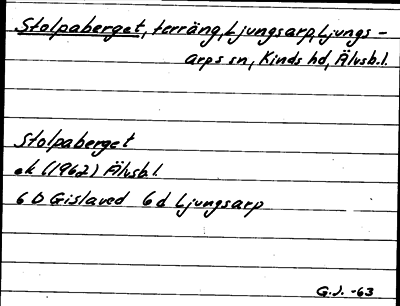 Stolpaberget, terräng, Ljungsarp, Ljungs-
arps sn, Kinds hd, Älvsb.l.
Stolpaberget
ek (1962) Älvsb.l.
6 D Gislaved 6 d Ljungsarp
G.J. -63